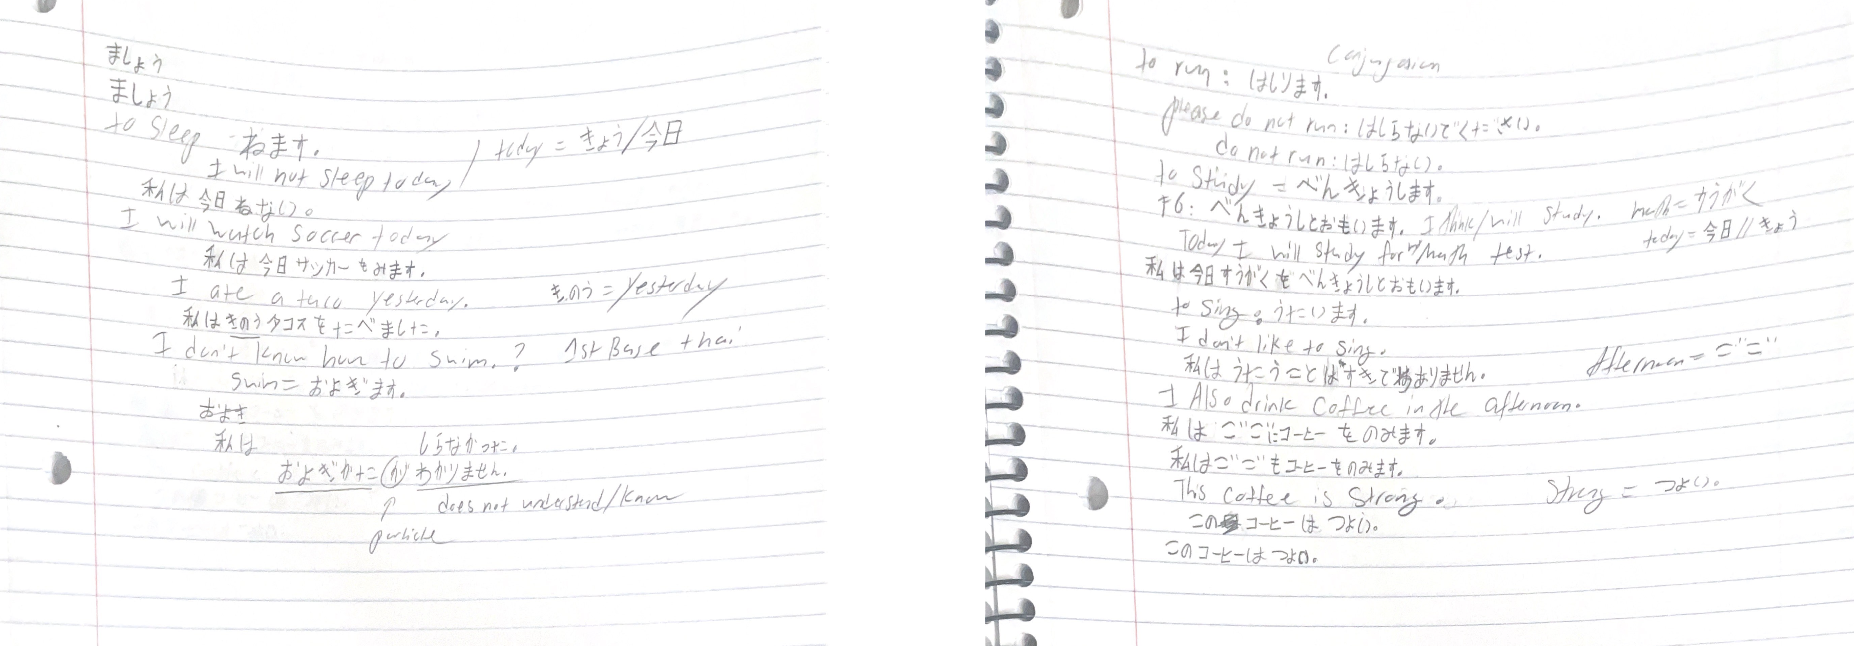 ましょう
ましょう
to sleep ねます。
today = きょう/今日
I will not sleep today
私は今日ねない。
I will watch soccer today
私は今日サッカーをみます。
I ate a taco yesterday.
きのう = yesterday
私はきのうタコスをたべました。
I don't know how to swim.? 1st Base thai
swim = およぎます。
およき
私は しらなかった。
およぎかた が わかりません。
↑ does not understand/know
particle
Conjugasion
to run: はしります。
please do not run: はしらないでください。
do not run: はしらない。
to Study = べんきょうします。
べんきょうしとおもいます。 I think/will study. math = すうがく
today = 今日 // きょう
Today I will study for math test.
私は今日すうがくをべんきょうしとおもいます。
to Sing: うたいます。
I don't like to sing.
私はうたうことはすきではありません。
Afternoon = ごご
I Also drink Coffee in the afternoon.
私はごごにコーヒーをのみます。
私はごごもコーヒーをのみます。
This coffee is Strong.
Strong = つよい。
この コーヒーは つよい。
このコーヒーはつよい。